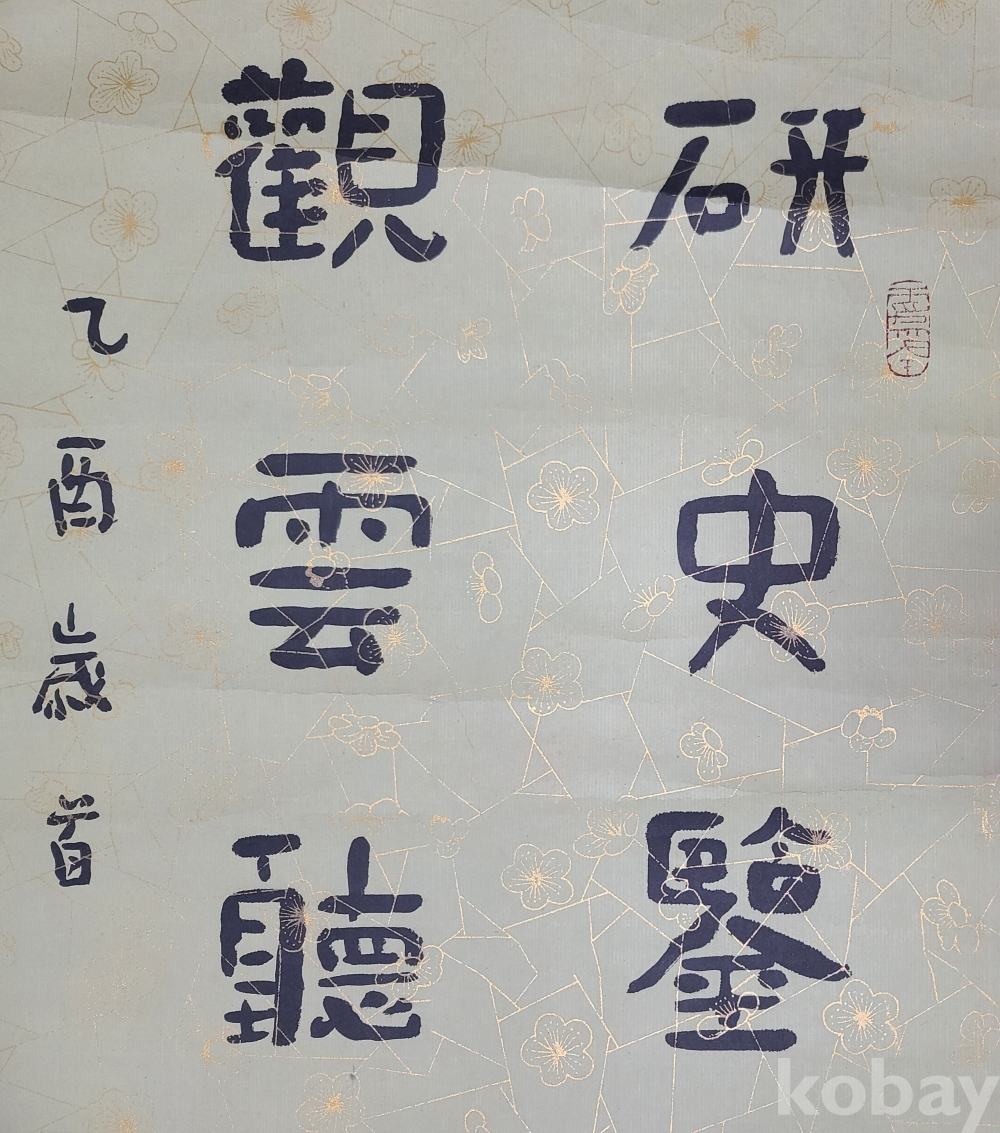 研史鑒
觀雲聽
乙酉歲首
kobay